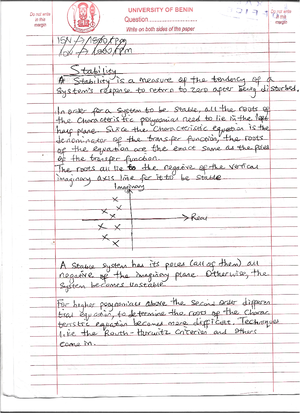 UNIVERSITY OF BENIN
Do not write in this margin
Question
Write on both sides of the paper
Do not write in this margin
Stability
A Stability is a measure of the tendency of a
system's response to return to zero after being disturbed.
In order for a system to be stable, all the roots of
the characteristic polynomial need to lie in the left
half plane. Since the characteristic equation is the
denominator of the transfer function, the roots
of the equation are the exact same as the poles
of the transfer function.
The roots all lie to the negative of the vertical
imaginary axis line for it to be stable.
Imaginary
Real
A stable system has its poles (all of them) all
negative of the imaginary plane. Otherwise, the
system becomes unstable
For higher polynomials above the second order differen
tial equation, to determine the roots of the charac
teristic equation becomes more difficult. Techniques
like the Routh-Hurwitz criterion and others
come in.